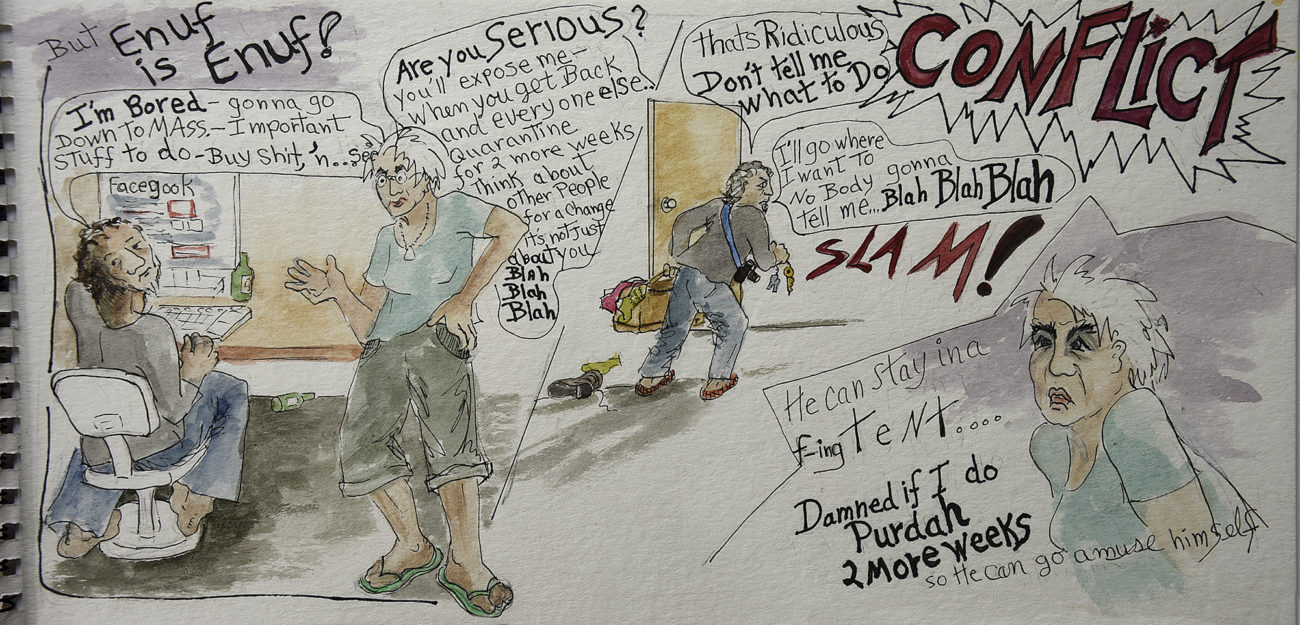 But Enuf
is Enuf!
I'm Bored - gonna go
Down To MAss. - Important
Stuff to do - Buy Shit, 'n.. See
Facegook
Are you Serious?
you'll expose me -
when you get Back
and every one else..
Quarantine
for 2 more weeks
Think about
other People
for a Change
it's not Just
about you
Blah
Blah
Blah
thats Ridiculous
Don't tell me
what to Do
CONFLiCT
I'll go where
I want To
No Body gonna
tell me... Blah Blah Blah
SLAM!
He can stay in a
f-ing TeNT....
Damned if I do
Purdah
2 More weeks
so He can go amuse himself